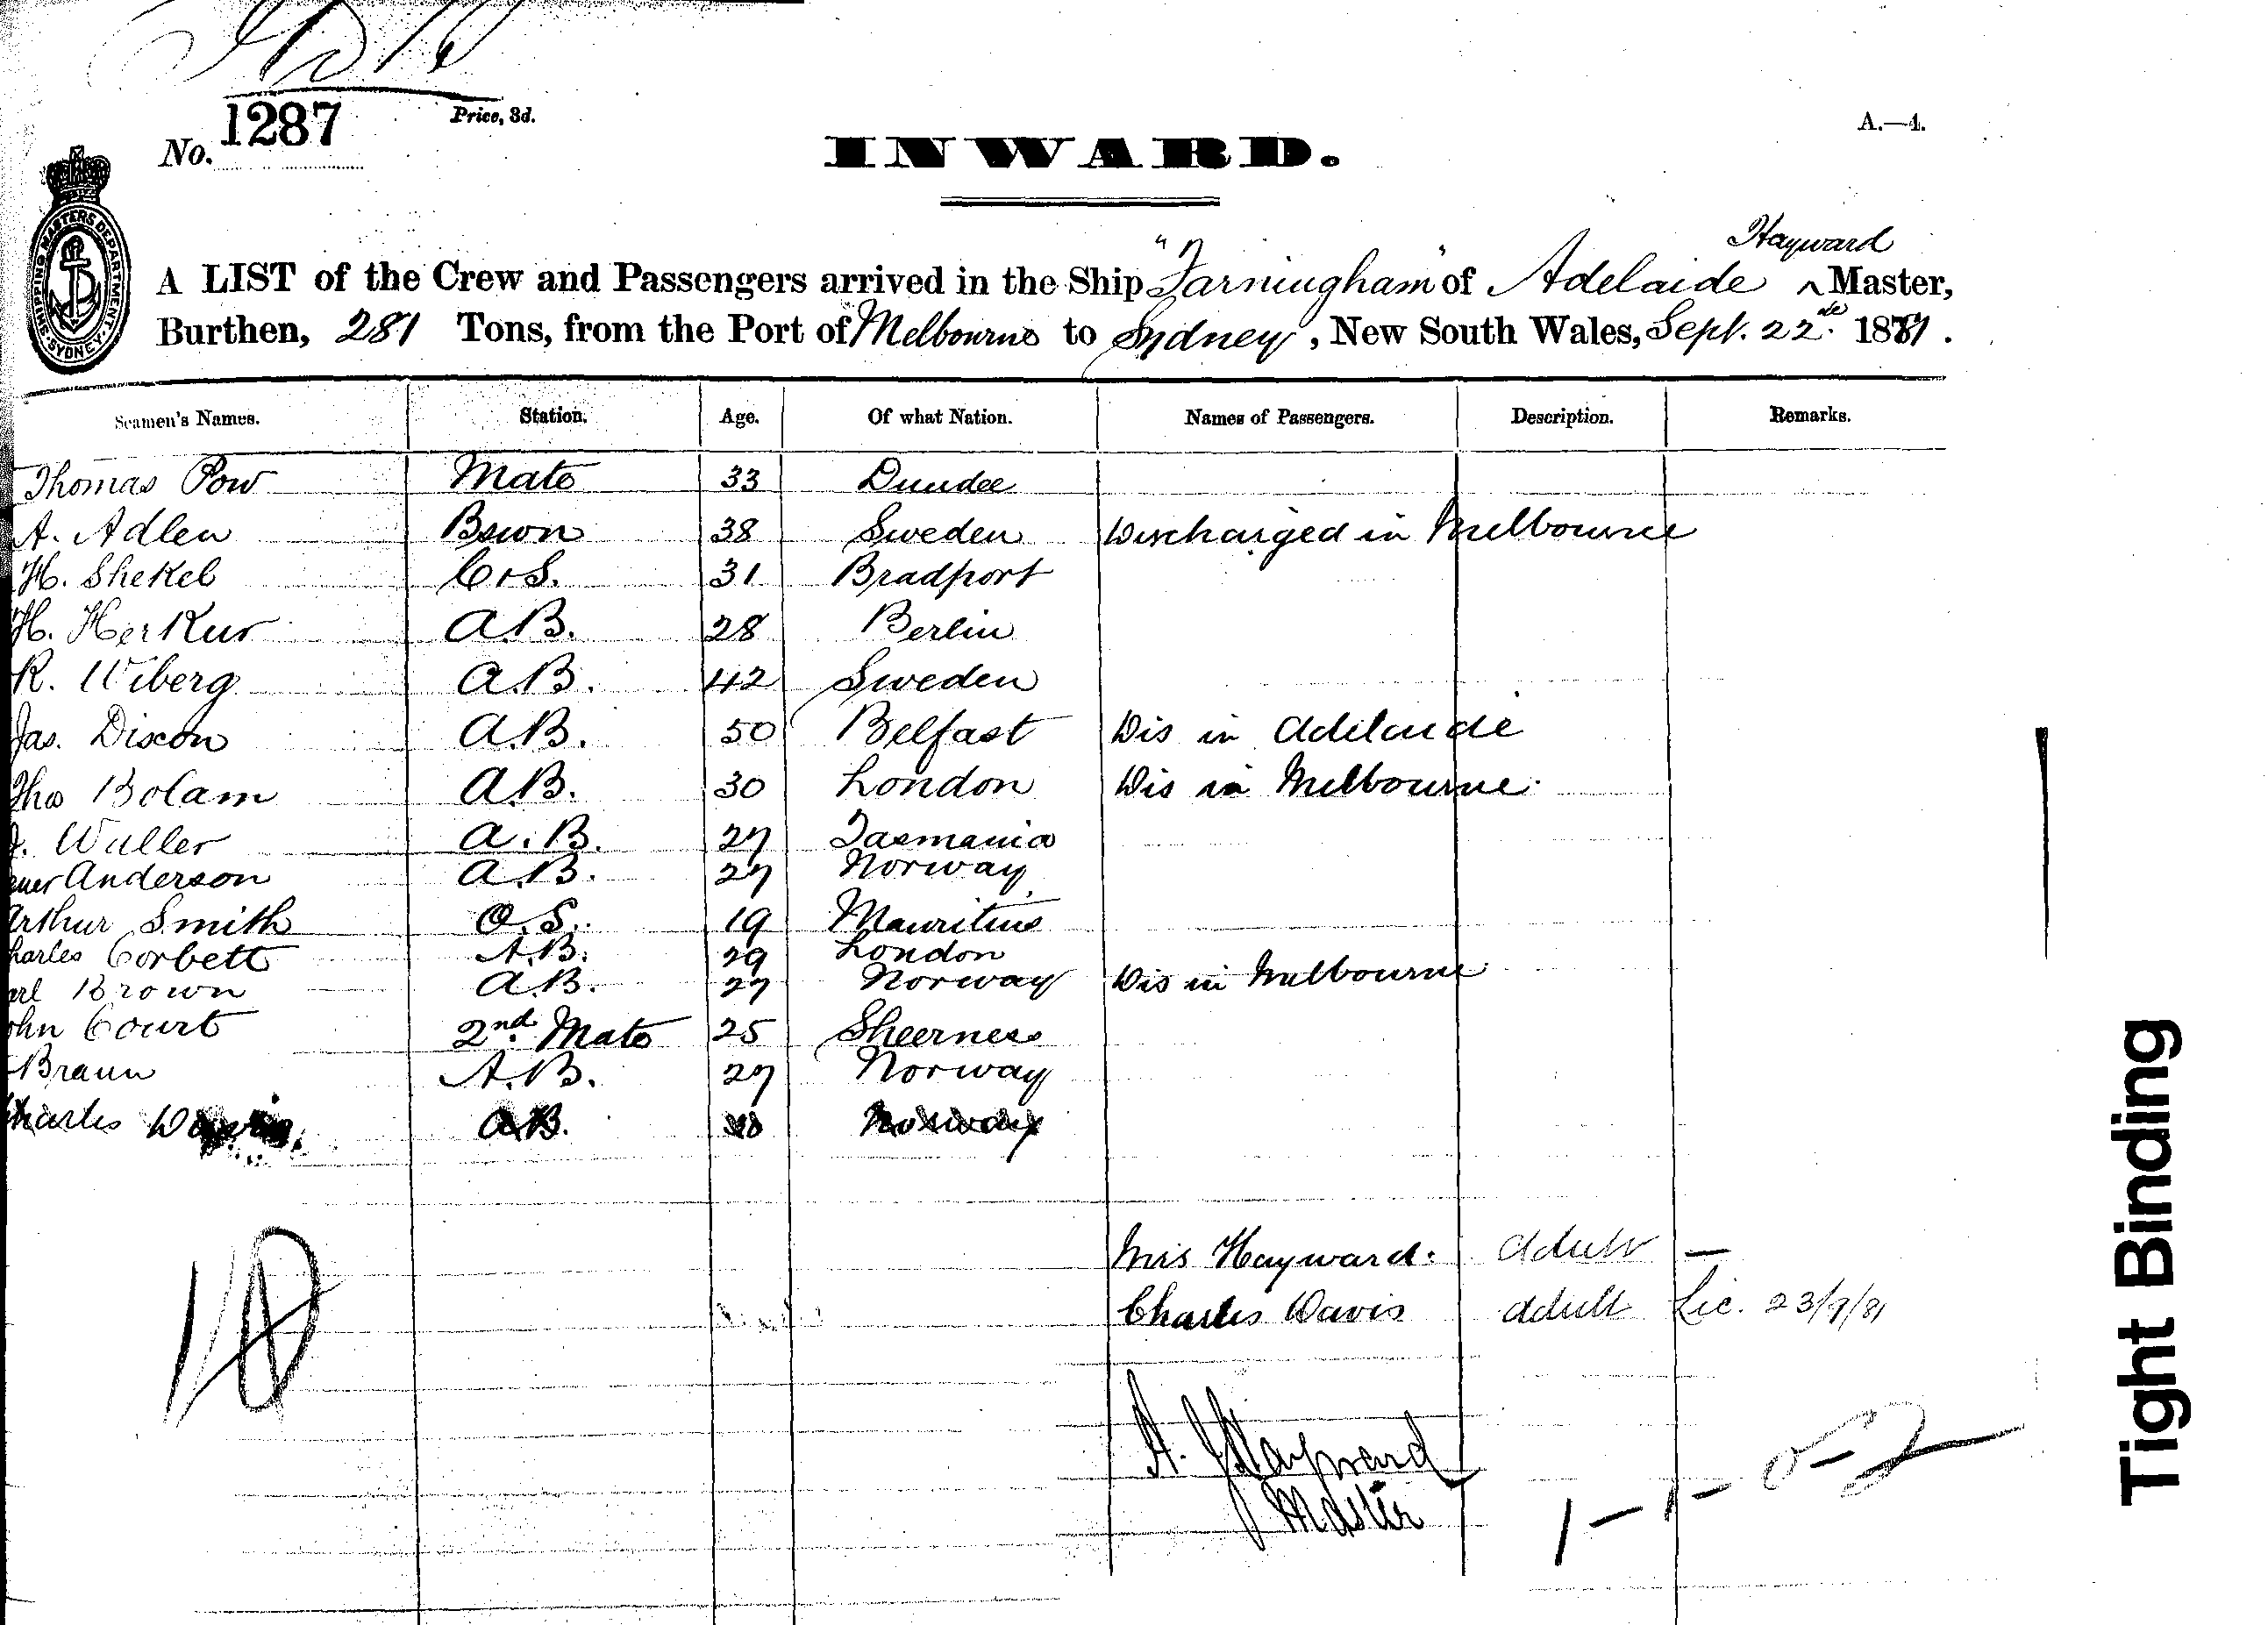 1287
Price, 3d.
No.
A.—4.
INWARD.
SHIPPING MASTERS DEPARTMENT SYDNEY
Hayward
A LIST of the Crew and Passengers arrived in the Ship "Farningham" of Adelaide ^ Master,
Burthen, 281 Tons, from the Port of Melbourne to Sydney, New South Wales, Sept. 22nd 1881.
Seamen's Names. Station. Age. Of what Nation. Names of Passengers. Description. Remarks.
Thomas Pow Mate 33 Dundee
A. Adlen Bswn 38 Sweden Discharged in Melbourne
H. Shekel C & S. 31 Bradport
H. Herkur A.B. 28 Berlin
R. Wiberg A.B. 42 Sweden
Jas. Dixon A.B. 50 Belfast Dis in Adelaide
Thos Bolam A.B. 30 London Dis in Melbourne
J. Waller A.B. 27 Tasmania
Anderson A.B. 27 Norway
Arthur Smith O.S. 19 Mauritius
harles Corbett A.B. 29 London
arl Brown A.B. 27 Norway Dis in Melbourne
ohn Court 2nd Mate 25 Sheerness
Braun A.B. 27 Norway
Charles A.B. Norway
Mrs Hayward. adult —
Charles Davis adult Lic. 23/9/81
A. Hayward
Master
1 - 1 -
Tight Binding